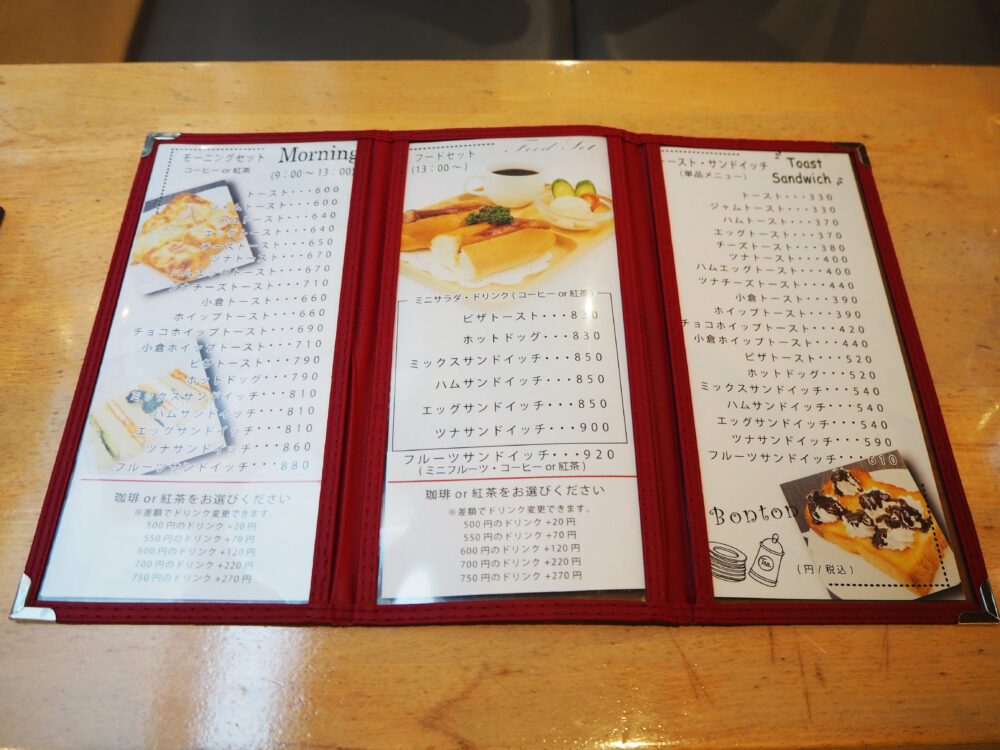 モーニングセット Morning
コーヒー or 紅茶 (9:00～13:00)
トースト・・・600
ジャムトースト・・・600
ハムトースト・・・640
エッグトースト・・・640
チーズトースト・・・650
ツナトースト・・・670
ハムエッグトースト・・・670
ツナチーズトースト・・・710
小倉トースト・・・660
ホイップトースト・・・660
チョコホイップトースト・・・690
小倉ホイップトースト・・・710
ピザトースト・・・790
ホットドッグ・・・790
ミックスサンドイッチ・・・810
ハムサンドイッチ・・・810
エッグサンドイッチ・・・810
ツナサンドイッチ・・・860
フルーツサンドイッチ・・・880
珈琲 or 紅茶をお選びください
※差額でドリンク変更できます。
500円のドリンク +20円
550円のドリンク +70円
600円のドリンク +120円
700円のドリンク +220円
750円のドリンク +270円
フードセット Food Set
(13:00～)
ミニサラダ・ドリンク(コーヒー or 紅茶)
ピザトースト・・・830
ホットドッグ・・・830
ミックスサンドイッチ・・・850
ハムサンドイッチ・・・850
エッグサンドイッチ・・・850
ツナサンドイッチ・・・900
フルーツサンドイッチ・・・920
(ミニフルーツ・コーヒー or 紅茶)
珈琲 or 紅茶をお選びください
※差額でドリンク変更できます。
500円のドリンク +20円
550円のドリンク +70円
600円のドリンク +120円
700円のドリンク +220円
750円のドリンク +270円
ースト・サンドイッチ Toast
(単品メニュー) Sandwich
トースト・・・330
ジャムトースト・・・330
ハムトースト・・・370
エッグトースト・・・370
チーズトースト・・・380
ツナトースト・・・400
ハムエッグトースト・・・400
ツナチーズトースト・・・440
小倉トースト・・・390
ホイップトースト・・・390
チョコホイップトースト・・・420
小倉ホイップトースト・・・440
ピザトースト・・・520
ホットドッグ・・・520
ミックスサンドイッチ・・・540
ハムサンドイッチ・・・540
エッグサンドイッチ・・・540
ツナサンドイッチ・・・590
フルーツサンドイッチ・・・610
Bonton
Tea
(円/税込)